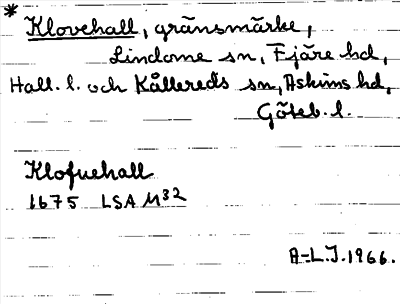 * Klovehall, gränsmärke,
Lindome sn, Fjäre hd,
Hall. l. och Kållereds sn, Askims hd,
Göteb. l.
Klofuehall
1675 LSA M32
A-L.J. 1966.